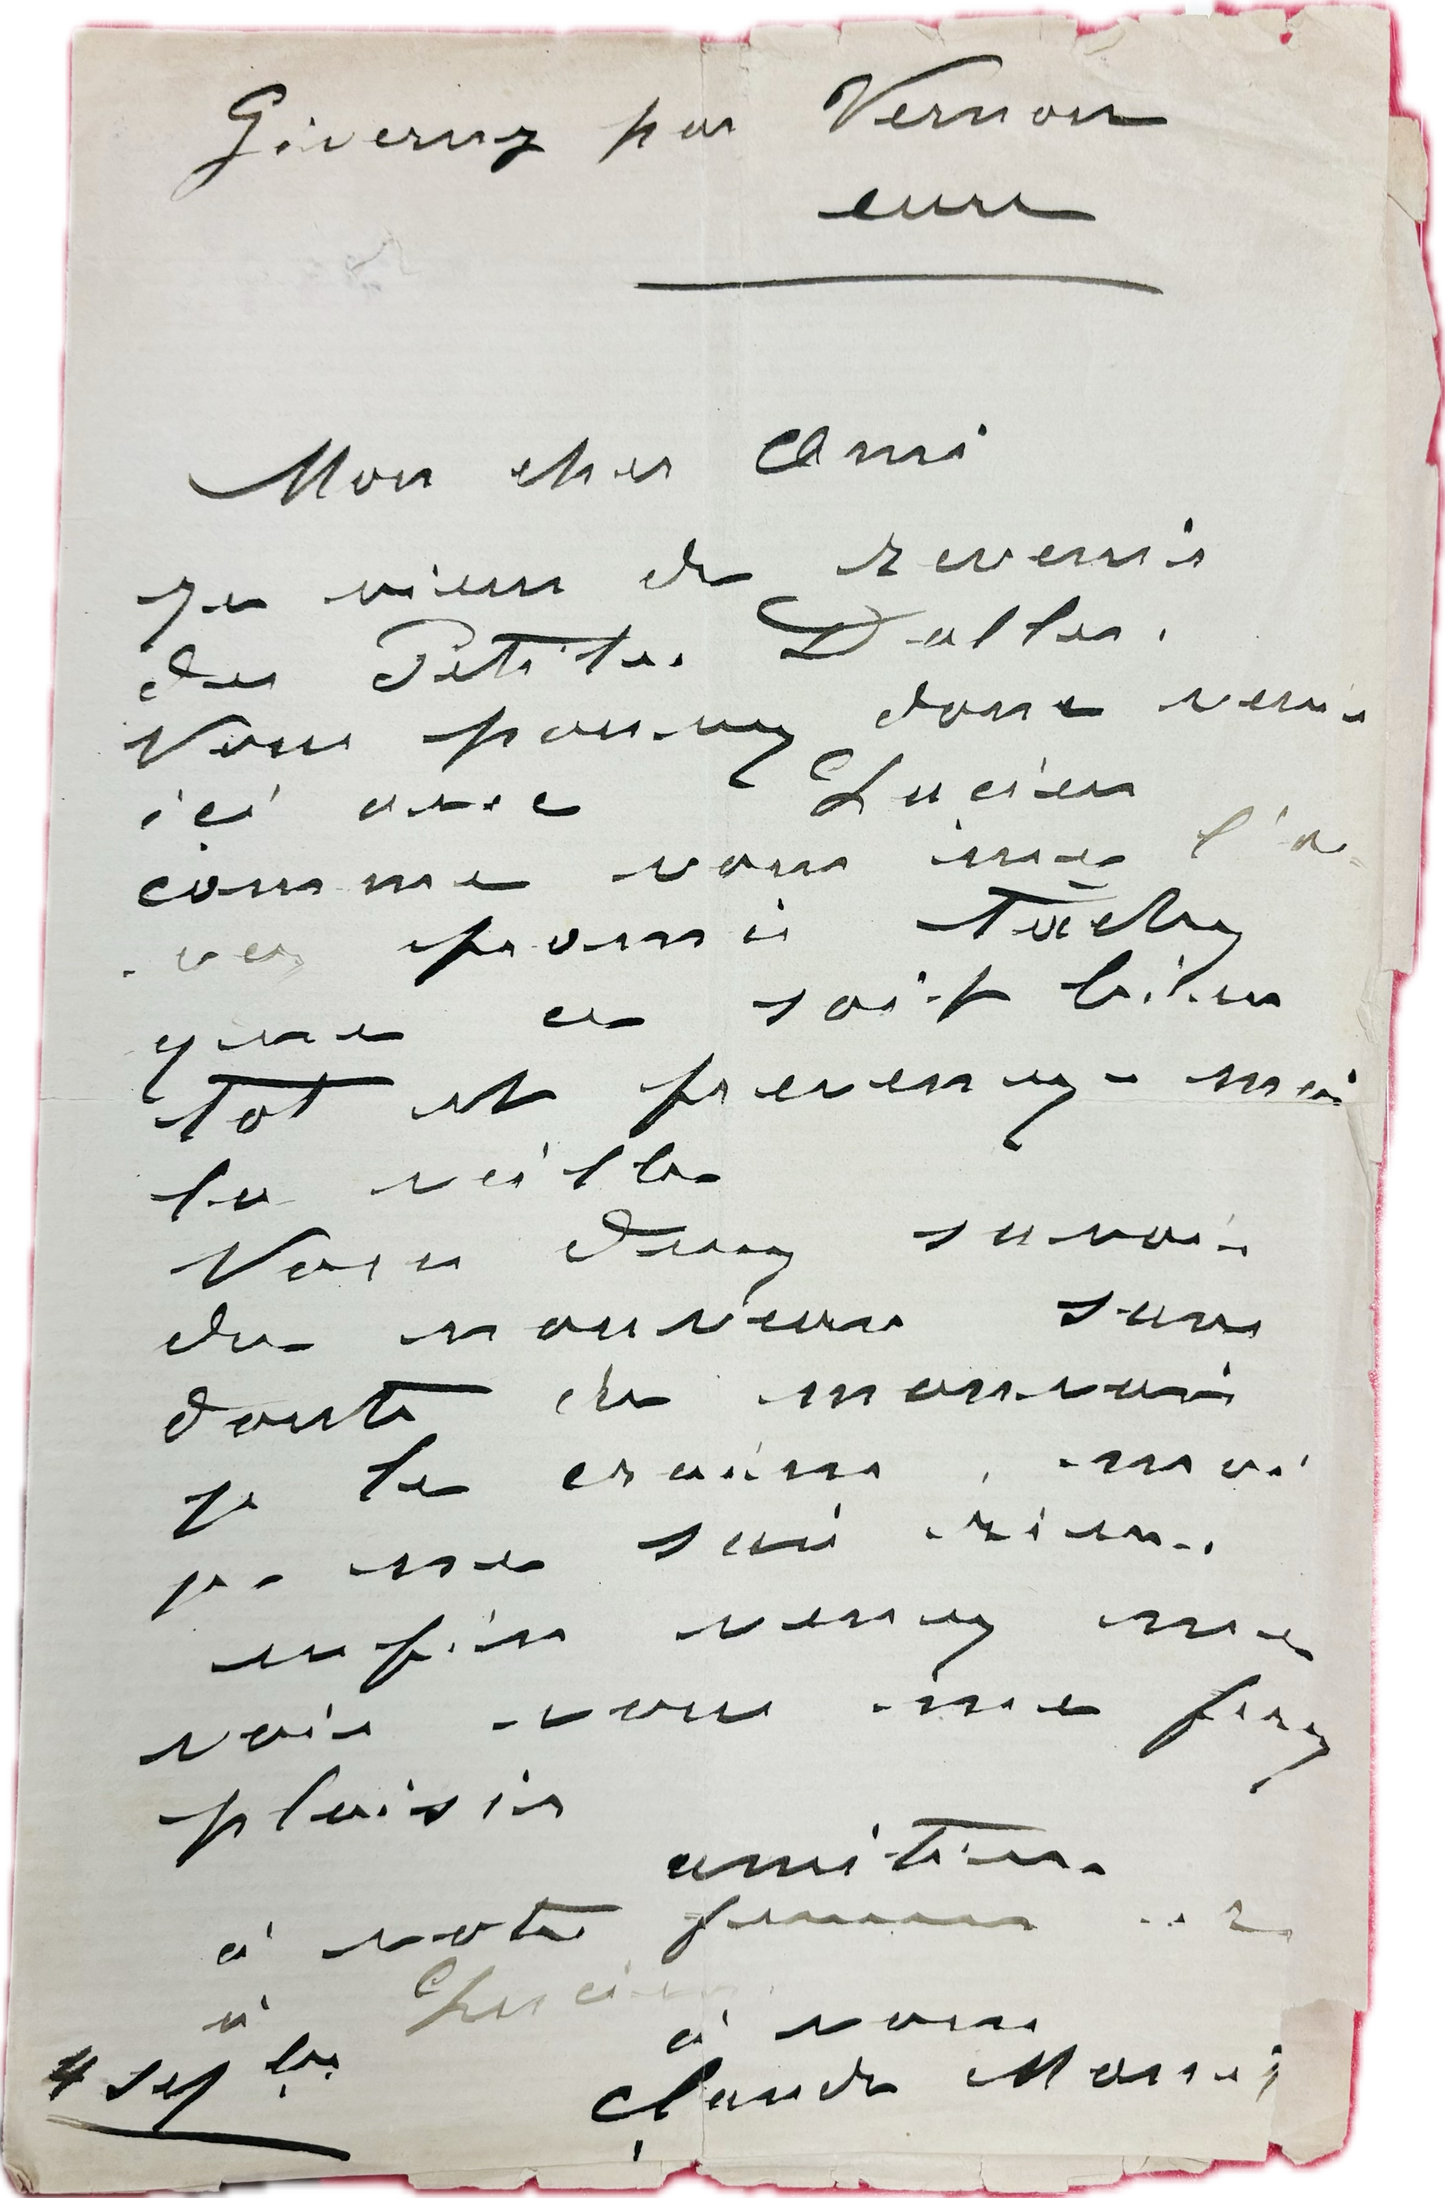 Giverny par Vernon
eure
Mon cher Ami
Je viens de revenir
des Petites Dalles.
Vous pourrez donc venir
ici avec Lucien
comme vous me l'a-
vez promis tâchez
que ce soit bien
tot et prevenez-moi
la veille
Vous devez savoir
du nouveau sans
doute du mauvais
je le crains, moi
je ne sais rien.
enfin venez me
voir vous me ferez
plaisir
amitiés
à votre femme
à Lucien
à vous
4 sepbre Claude Monet